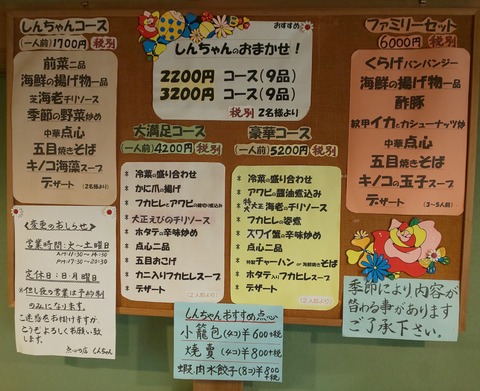 しんちゃんコース
(一人前)1700円 税別
前菜二品
海鮮の揚げ物一品
芝海老チリソース
季節の野菜炒め
中華点心
五目焼きそば
キノコ海藻スープ
デザート
(2名様より)
おすすめ
しんちゃんのおまかせ!
2200円 コース(9品)
3200円 コース(9品)
税別 2名様より
ファミリーセット
6000円 税別
くらげバンバンジー
海鮮の揚げ物一品
酢豚
紋甲イカとカシューナッツ炒め
中華点心
五目焼きそば
キノコの玉子スープ
デザート
(3~5人前)
大満足コース
(一人前)4200円 税別
* 冷菜の盛り合わせ
* かに爪の揚げ
* フカヒレとアワビの細切り煮込み
* 大正えびのチリソース
* ホタテの辛味炒め
* 点心二品
* 五目おこげ
* カニ入りフカヒレスープ
* デザート
(2人前より)
豪華コース
(一人前)5200円 税別
* 冷菜の盛り合わせ
* アワビの醤油煮込み
* 特大大正海老のチリソース
* フカヒレの姿煮
* スワイ蟹の辛味炒め
* 中華点心二品
* 特製チャーハン or 海鮮焼きそば
* ホタテ入りフカヒレスープ
* デザート
(2人前より)
変更のお知らせ
営業時間:火~土曜日
AM11:30~14:30
PM17:30~20:30
定休日:日・月曜日
*但し夜の営業は予約制
のみになります。
ご迷惑をお掛けしますが
どうぞよろしくお願い致
します。
点心の店 しんちゃん
しんちゃんおすすめ点心
小籠包(4コ)¥600+税
焼賣(4コ)¥800+税
蝦肉水餃子(8コ)¥800+税
季節により内容が
替わる事があります
ご了承下さい。